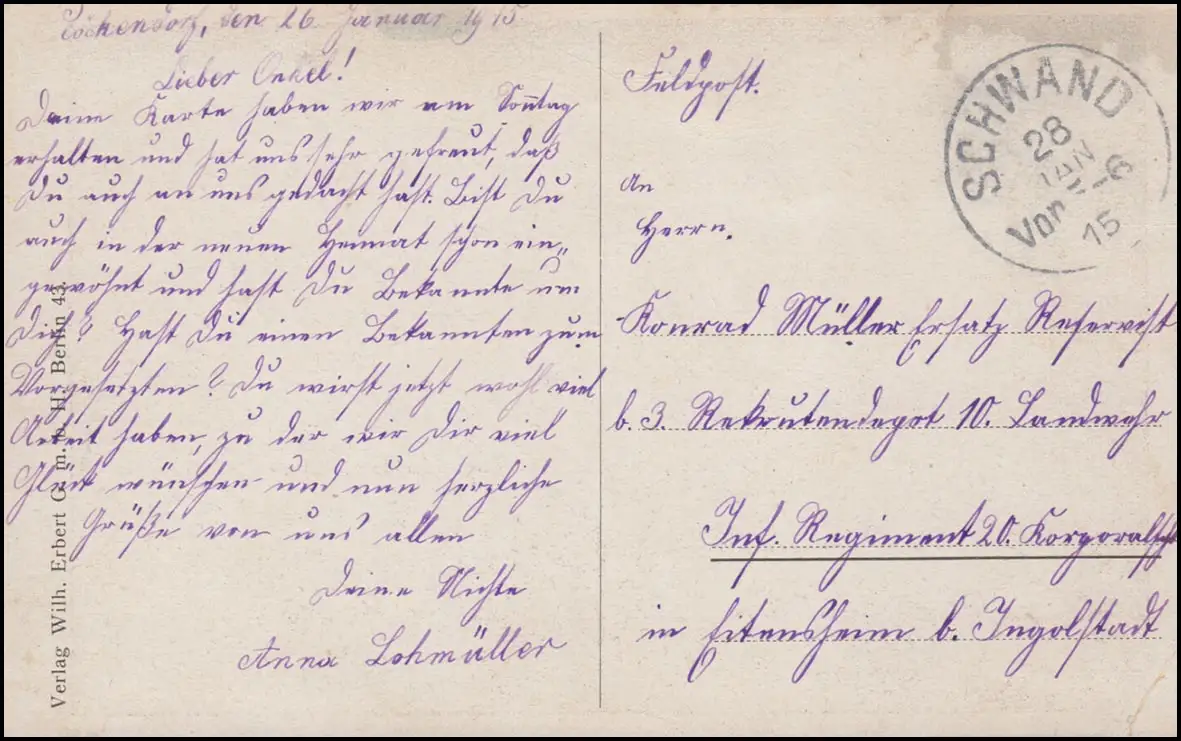 den 26. Januar 1915
Lieber Onkel!
Deine Karte haben wir am Sonntag
erhalten und hat uns sehr gefreut, daß
Du auch an uns gedacht hast. Bist Du
auch in der neuen Heimat schon ein„
gewöhnt und hast Du Bekannte um
Dich? Hast Du einen Bekannten zum
Vorgesetzten? Du wirst jetzt wohl viel
Arbeit haben, zu der wir Dir viel
Glück wünschen und nun herzliche
Grüße von uns allen
Deine Nichte
Anna Lohmüller
Verlag Wilh. Erbert G. m. b. H., Berlin 43.
Feldpost.
SCHWAND
28
JAN
Vor
15
An
Herrn.
Konrad Müller Ersatz Reservist
b. 3. Rekrutendepot 10. Landwehr
Inf. Regiment 20. Korporalsch
in Eitensheim b. Ingolstadt